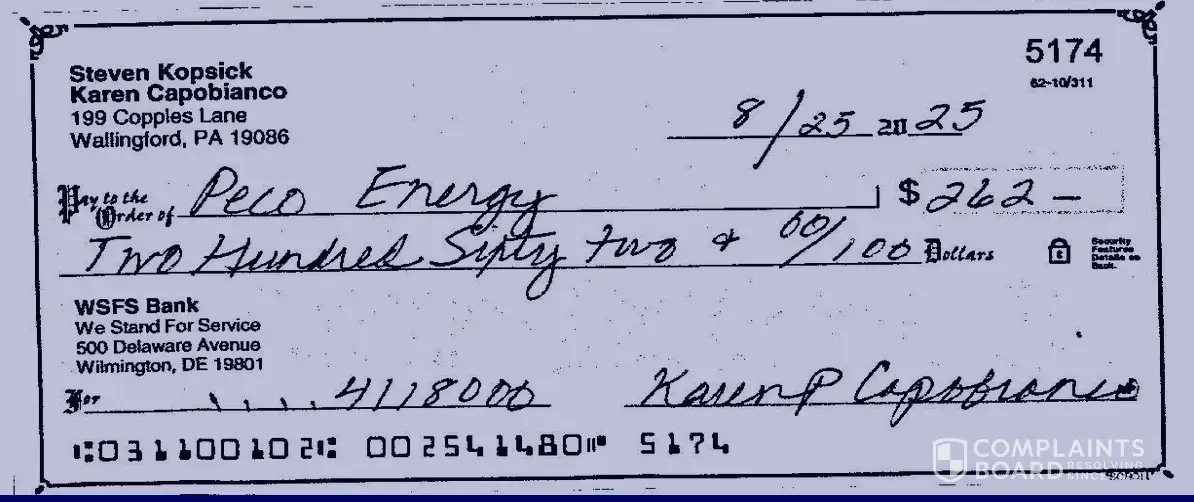 5174
62-10/311
Steven Kopsick
Karen Capobianco
199 Copples Lane
Wallingford, PA 19086
8/25 20 25
Pay to the
Order of Peco Energy $ 262 –
Two Hundred Sixty two & 00/100 Dollars
Security
Features
Details on
Back.
WSFS Bank
We Stand For Service
500 Delaware Avenue
Wilmington, DE 19801
For 4118000 Karen P Capobianco
⑆031100102⑆ 002541480⑈ 5174
COMPLAINTS
BOARD RESOLVING
SINCE